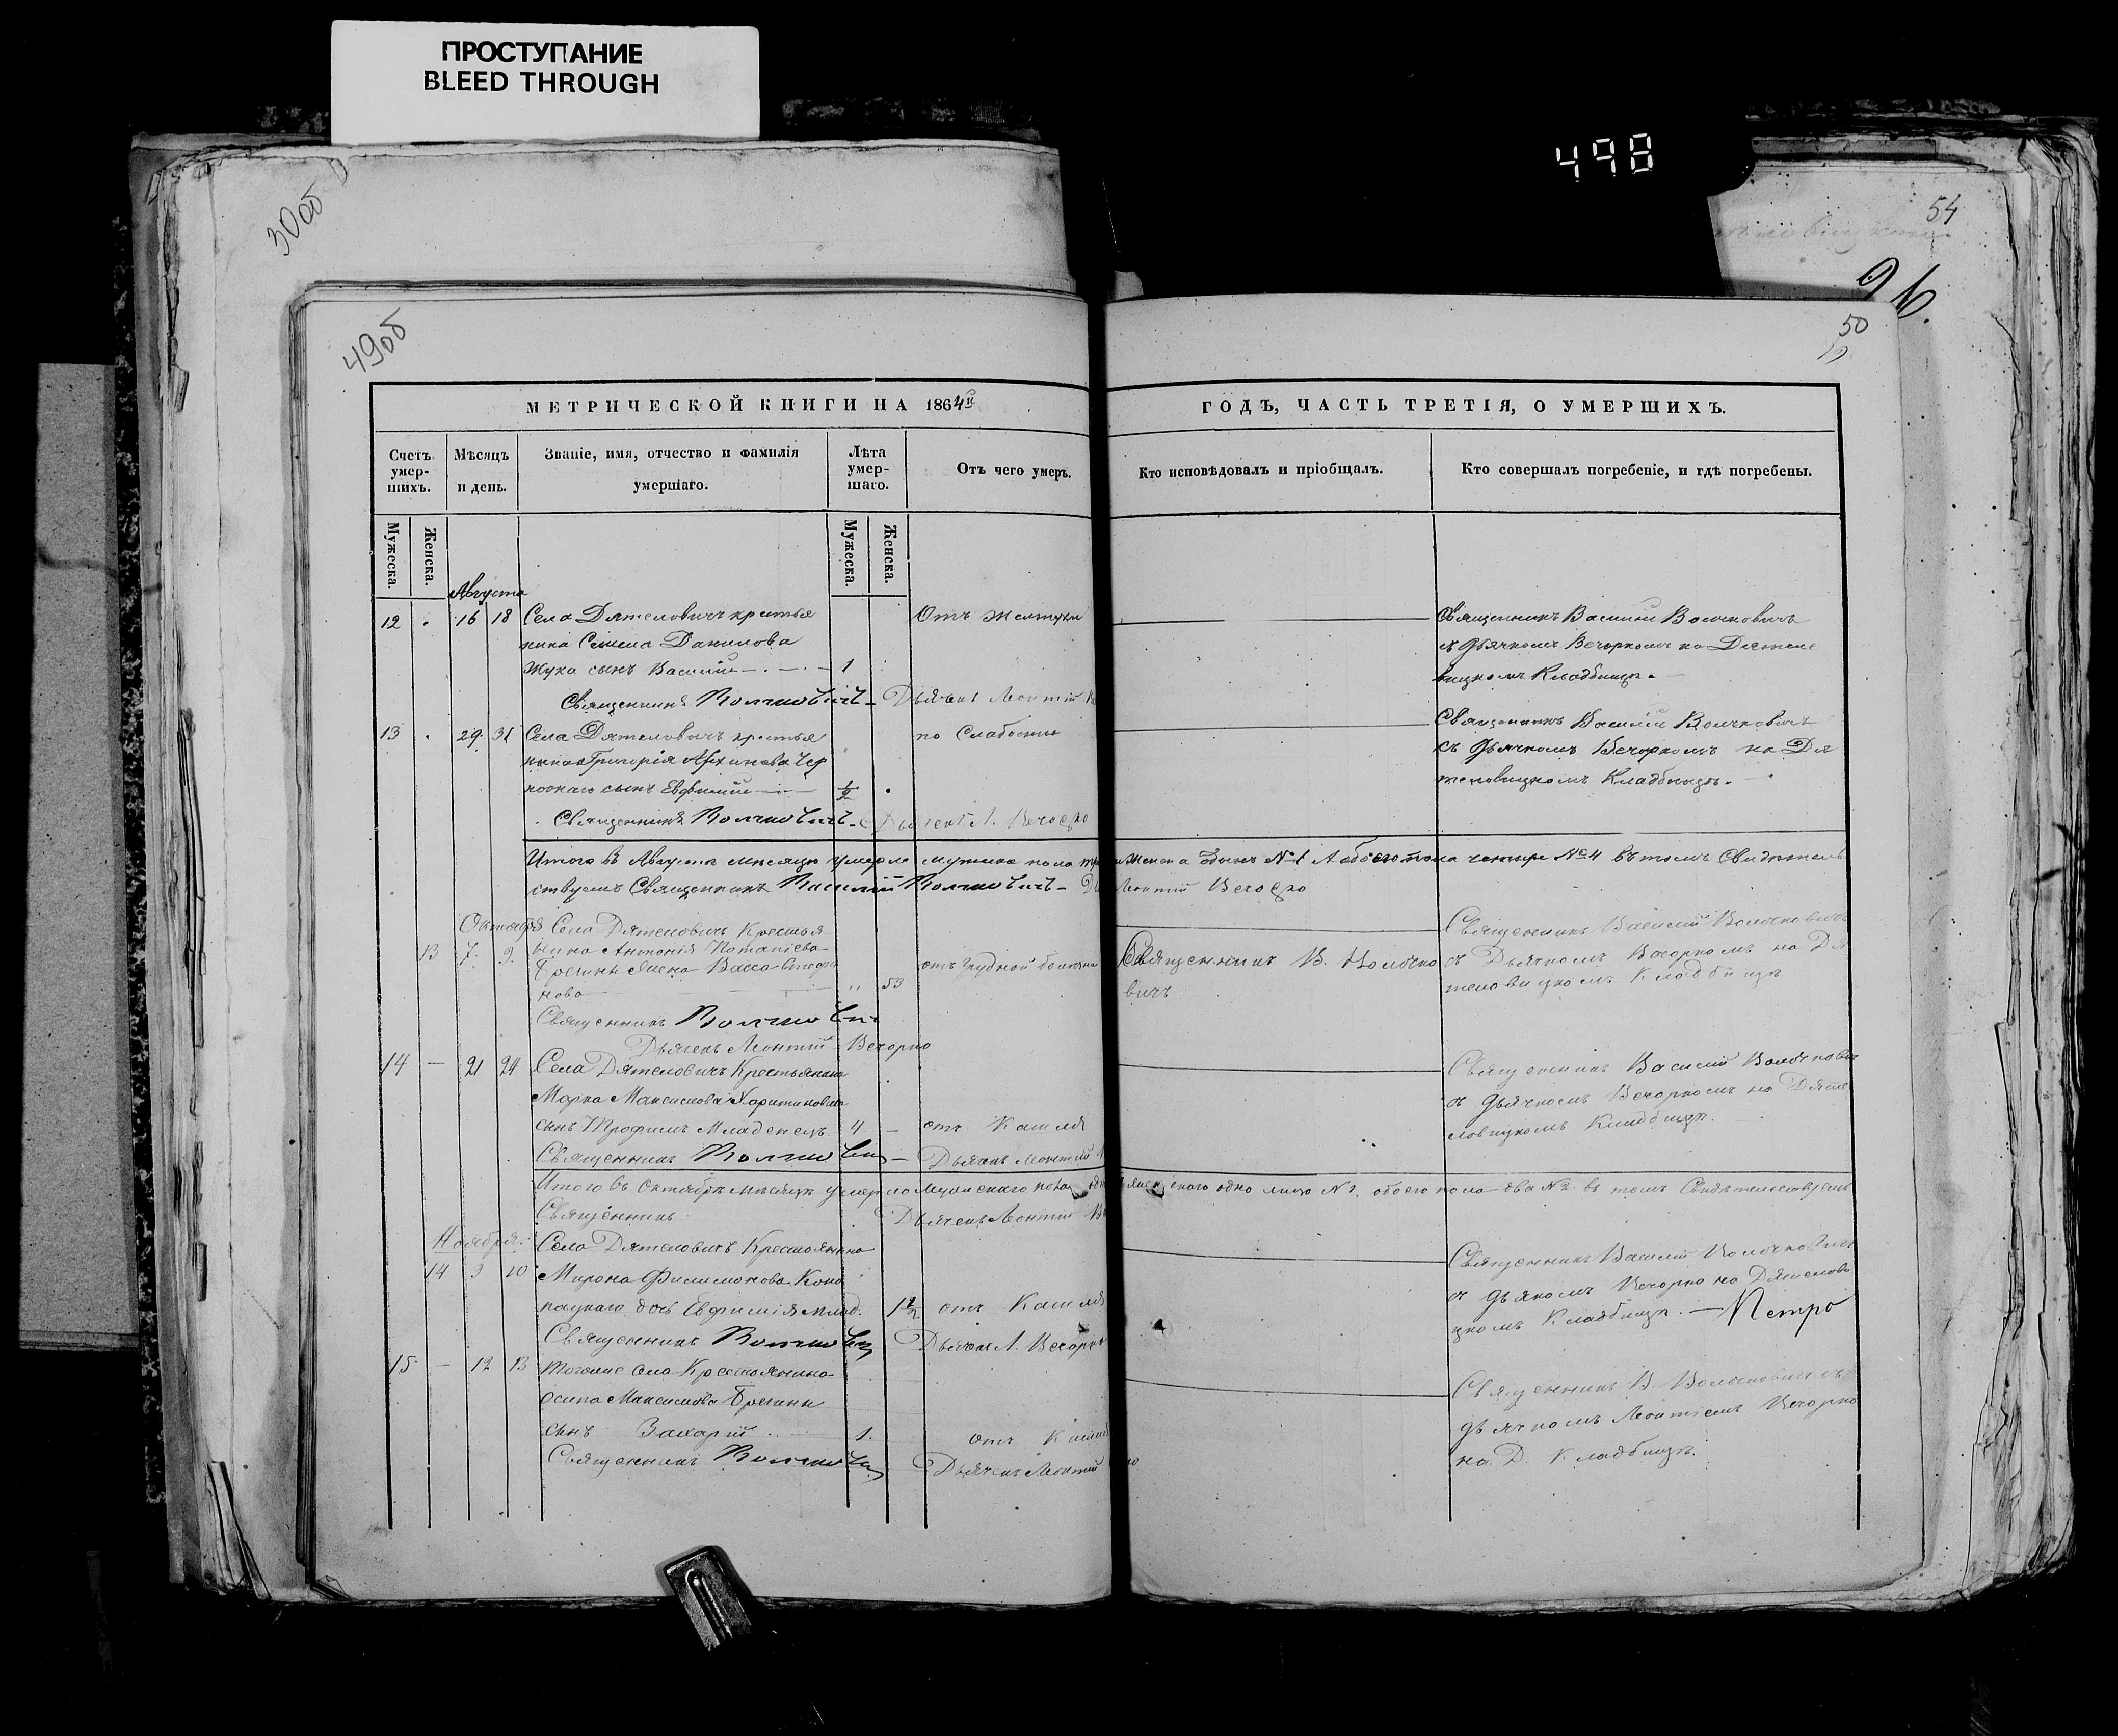 ПРОСТУПАНИЕ
BLEED THROUGH
498
30об
54
96.
49об
50
МЕТРИЧЕСКОЙ КНИГИ НА 1864й
ГОДЪ, ЧАСТЬ ТРЕТІЯ, О УМЕРШИХЪ.
Счетъ умер-шихъ.
Мѣсяцъ и день.
Званіе, имя, отчество и фамилія умершаго.
Лѣта умер-шаго.
Отъ чего умеръ.
Кто исповѣдовалъ и пріобщалъ.
Кто совершалъ погребеніе, и гдѣ погребены.
Мужеска.
Женска.
Мужеска.
Женска.
Августа
12 . 16 18 Села Дятеловичъ крестья
нина Семена Данилова
Жука сынъ Василій 1
Отъ желтухи
Священникъ Василій Волчковичъ
съ дьячкомъ Вечоркомъ на Дятело
вицкомъ Кладбищѣ.
Священникъ Волчковичъ - Дьячекъ Леонтій
13 . 29. 31 Села Дятеловичъ крестья
нина Григорія Архипова Чер
сынъ Евфимій 1/2
по Слабости
Священникъ Василій Волчковичъ
съ Дьячкомъ Вечоркомъ на Дя
теловицкомъ Кладбищѣ.
Священникъ Волчковичъ - Дьячекъ Л. Вечорко
Итого въ Августѣ мѣсяцѣ умерло мужеска пола женска одинъ №1 А обоего пола четыре №4 въ томъ Свидѣтель
ствуемъ Священникъ Василій Волчковичъ - Леонтій Вечорко
Октября Села Дятеловичъ Крестья
13 7. 9. нина Антонія Потапіева
жена Васса
нова 53
отъ грудной болезни
Священникъ В. Волчко
вичъ
Священникъ Василій Волчковичъ
съ Дьячкомъ Вечоркомъ на Дя
теловицкомъ Кладбищѣ
Священникъ Волчковичъ
Дьячекъ Леонтій Вечорко
14 — 21 24 Села Дятеловичъ Крестьянина
Марка Максимова
сынъ Трофимъ младенецъ
отъ Кашля
Священникъ Василій Волчкович
съ дьячкомъ Вечоркомъ на Дяте
ловицкомъ Кладбищѣ.
Священникъ Волчковичъ — Дьячекъ Леонтій
Итого въ Октябрѣ мѣсяцѣ умерло Мужескаго пола одно женскаго одно лицо №1, обоего пола два №2 въ томъ Свидѣтельствуемъ
Священникъ Дьячекъ Леонтій
Ноября. Села Дятеловичъ Крестьянина
14 3 10 Мирона Филимонова Коно
дочь Евфимія млад. 1 1/2 отъ Кашля
Священникъ Василій Волчковичъ
съ дьякомъ Вечорко на Дятелови
цкомъ Кладбищѣ. — Петро
Священникъ Волчковичъ Дьячекъ Л. Вечорко
15 — 12 13 Тогоже села Крестьянина
Осипа Максимова
сынъ Захарій 1. отъ Кашля
Священникъ В. Волчковичъ съ
дьячкомъ Леонтіемъ Вечорко
на Д. Кладбищѣ.
Священникъ Волчковичъ Дьячекъ Леонтій